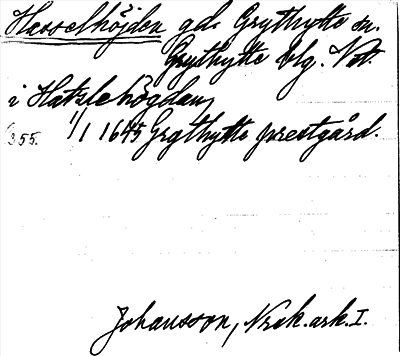 Hasselhöjden gd. Grythytte sn.
Grythytte blg. Vst.
i Hatzlehögdan
355. 1/1 1645 Grythytte prestgård.
Johansson, Nrak. ark. I.